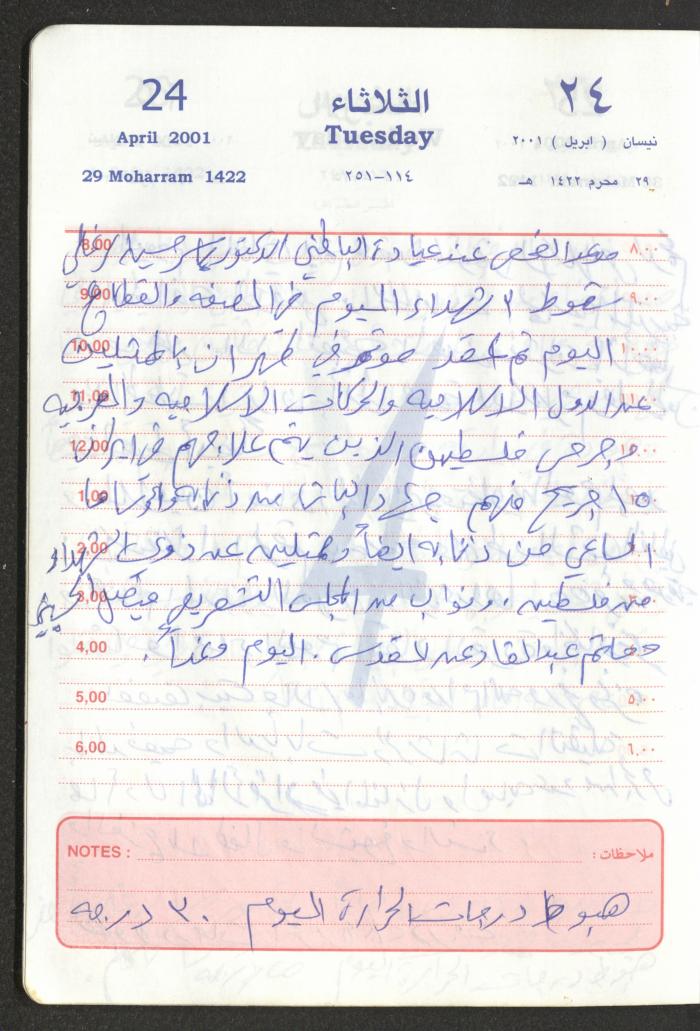 24 الثلاثاء ٢٤
April 2001 Tuesday نيسان ( ابريل ) ٢٠٠١
29 Moharram 1422 ١١٤-٢٥١ ٢٩ محرم ١٤٢٢ هـ
8,00 موعد الفحص عند عيادة الباطني الدكتور ٨,٠٠
9,00 سقوط ٣ شهداء اليوم في الضفه والقطاع ٩,٠٠
10,00 اليوم تم عقد مؤتمر في طهران بالممثلين ١٠,٠٠
11,00 عن الدول الاسلاميه والحركات الاسلاميه والعربيه ١١,٠٠
12,00 وجرحى فلسطين الذين يتم علاجهم في ايران ١٢,٠٠
1,00 ١٥ جريح منهم من دنابه ١,٠٠
2,00 من دنابه ايضاً وممثلين عن ذوي الشهداء ٢,٠٠
3,00 من فلسطين. ونواب من المجلس التشريعي فيصل الحسيني ٣,٠٠
4,00 وحاتم عبد القادر عن القدس. اليوم وغداً. ٤,٠٠
5,00 ٥,٠٠
6,00 ٦,٠٠
NOTES : ملاحظات :
هبوط درجات الحرارة اليوم ٣٠ درجه